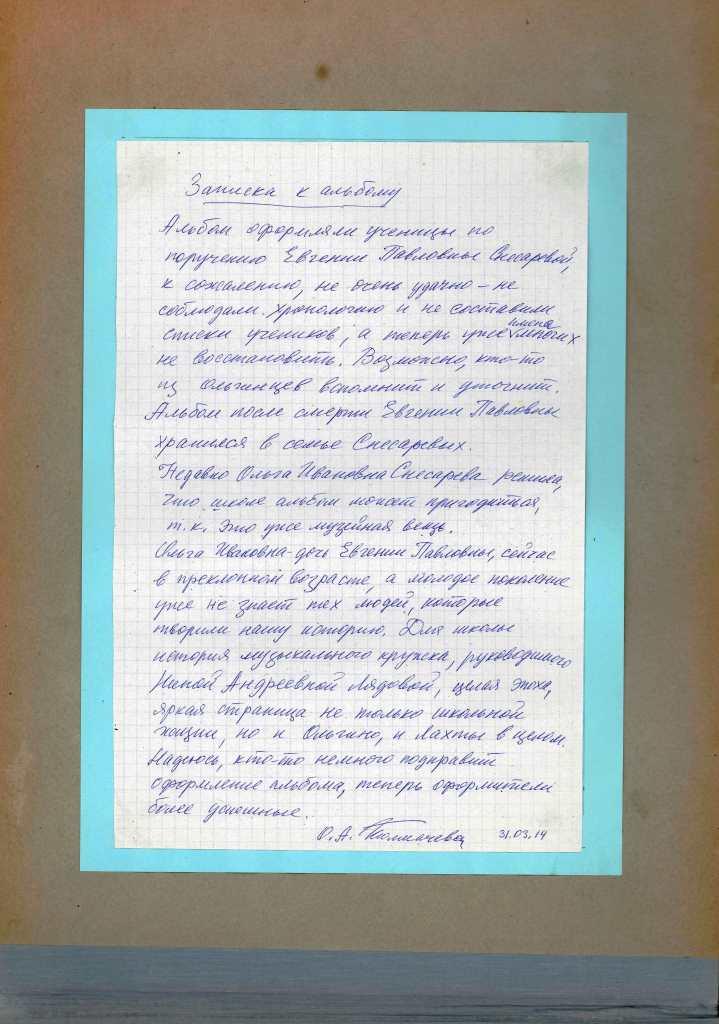 Записка к альбому
Альбом оформляли ученицы по
поручению Евгении Павловны Снесаревой,
к сожалению, не очень удачно – не
соблюдали хронологию и не составили
имена
списки учеников, а теперь уже многих
не восстановить. Возможно, кто-то
из Ольгинцев вспомнит и уточнит.
Альбом после смерти Евгении Павловны
хранился в семье Снесаревых.
Недавно Ольга Ивановна Снесарева решила,
что школе альбом может пригодиться,
т.к. это уже музейная вещь.
Ольга Ивановна - дочь Евгении Павловны, сейчас
в преклонном возрасте, а молодое поколение
уже не знает тех людей, которые
творили нашу историю. Для школы
история музыкального кружка, руководимого
Ниной Андреевной Лядовой, целая эпоха,
яркая страница не только школьной
жизни, но и Ольгино, и Лахты в целом.
Надеюсь, кто-то немного подправит
оформление альбома, теперь оформители
более успешные.
О.А. Толмачева 31.03.14